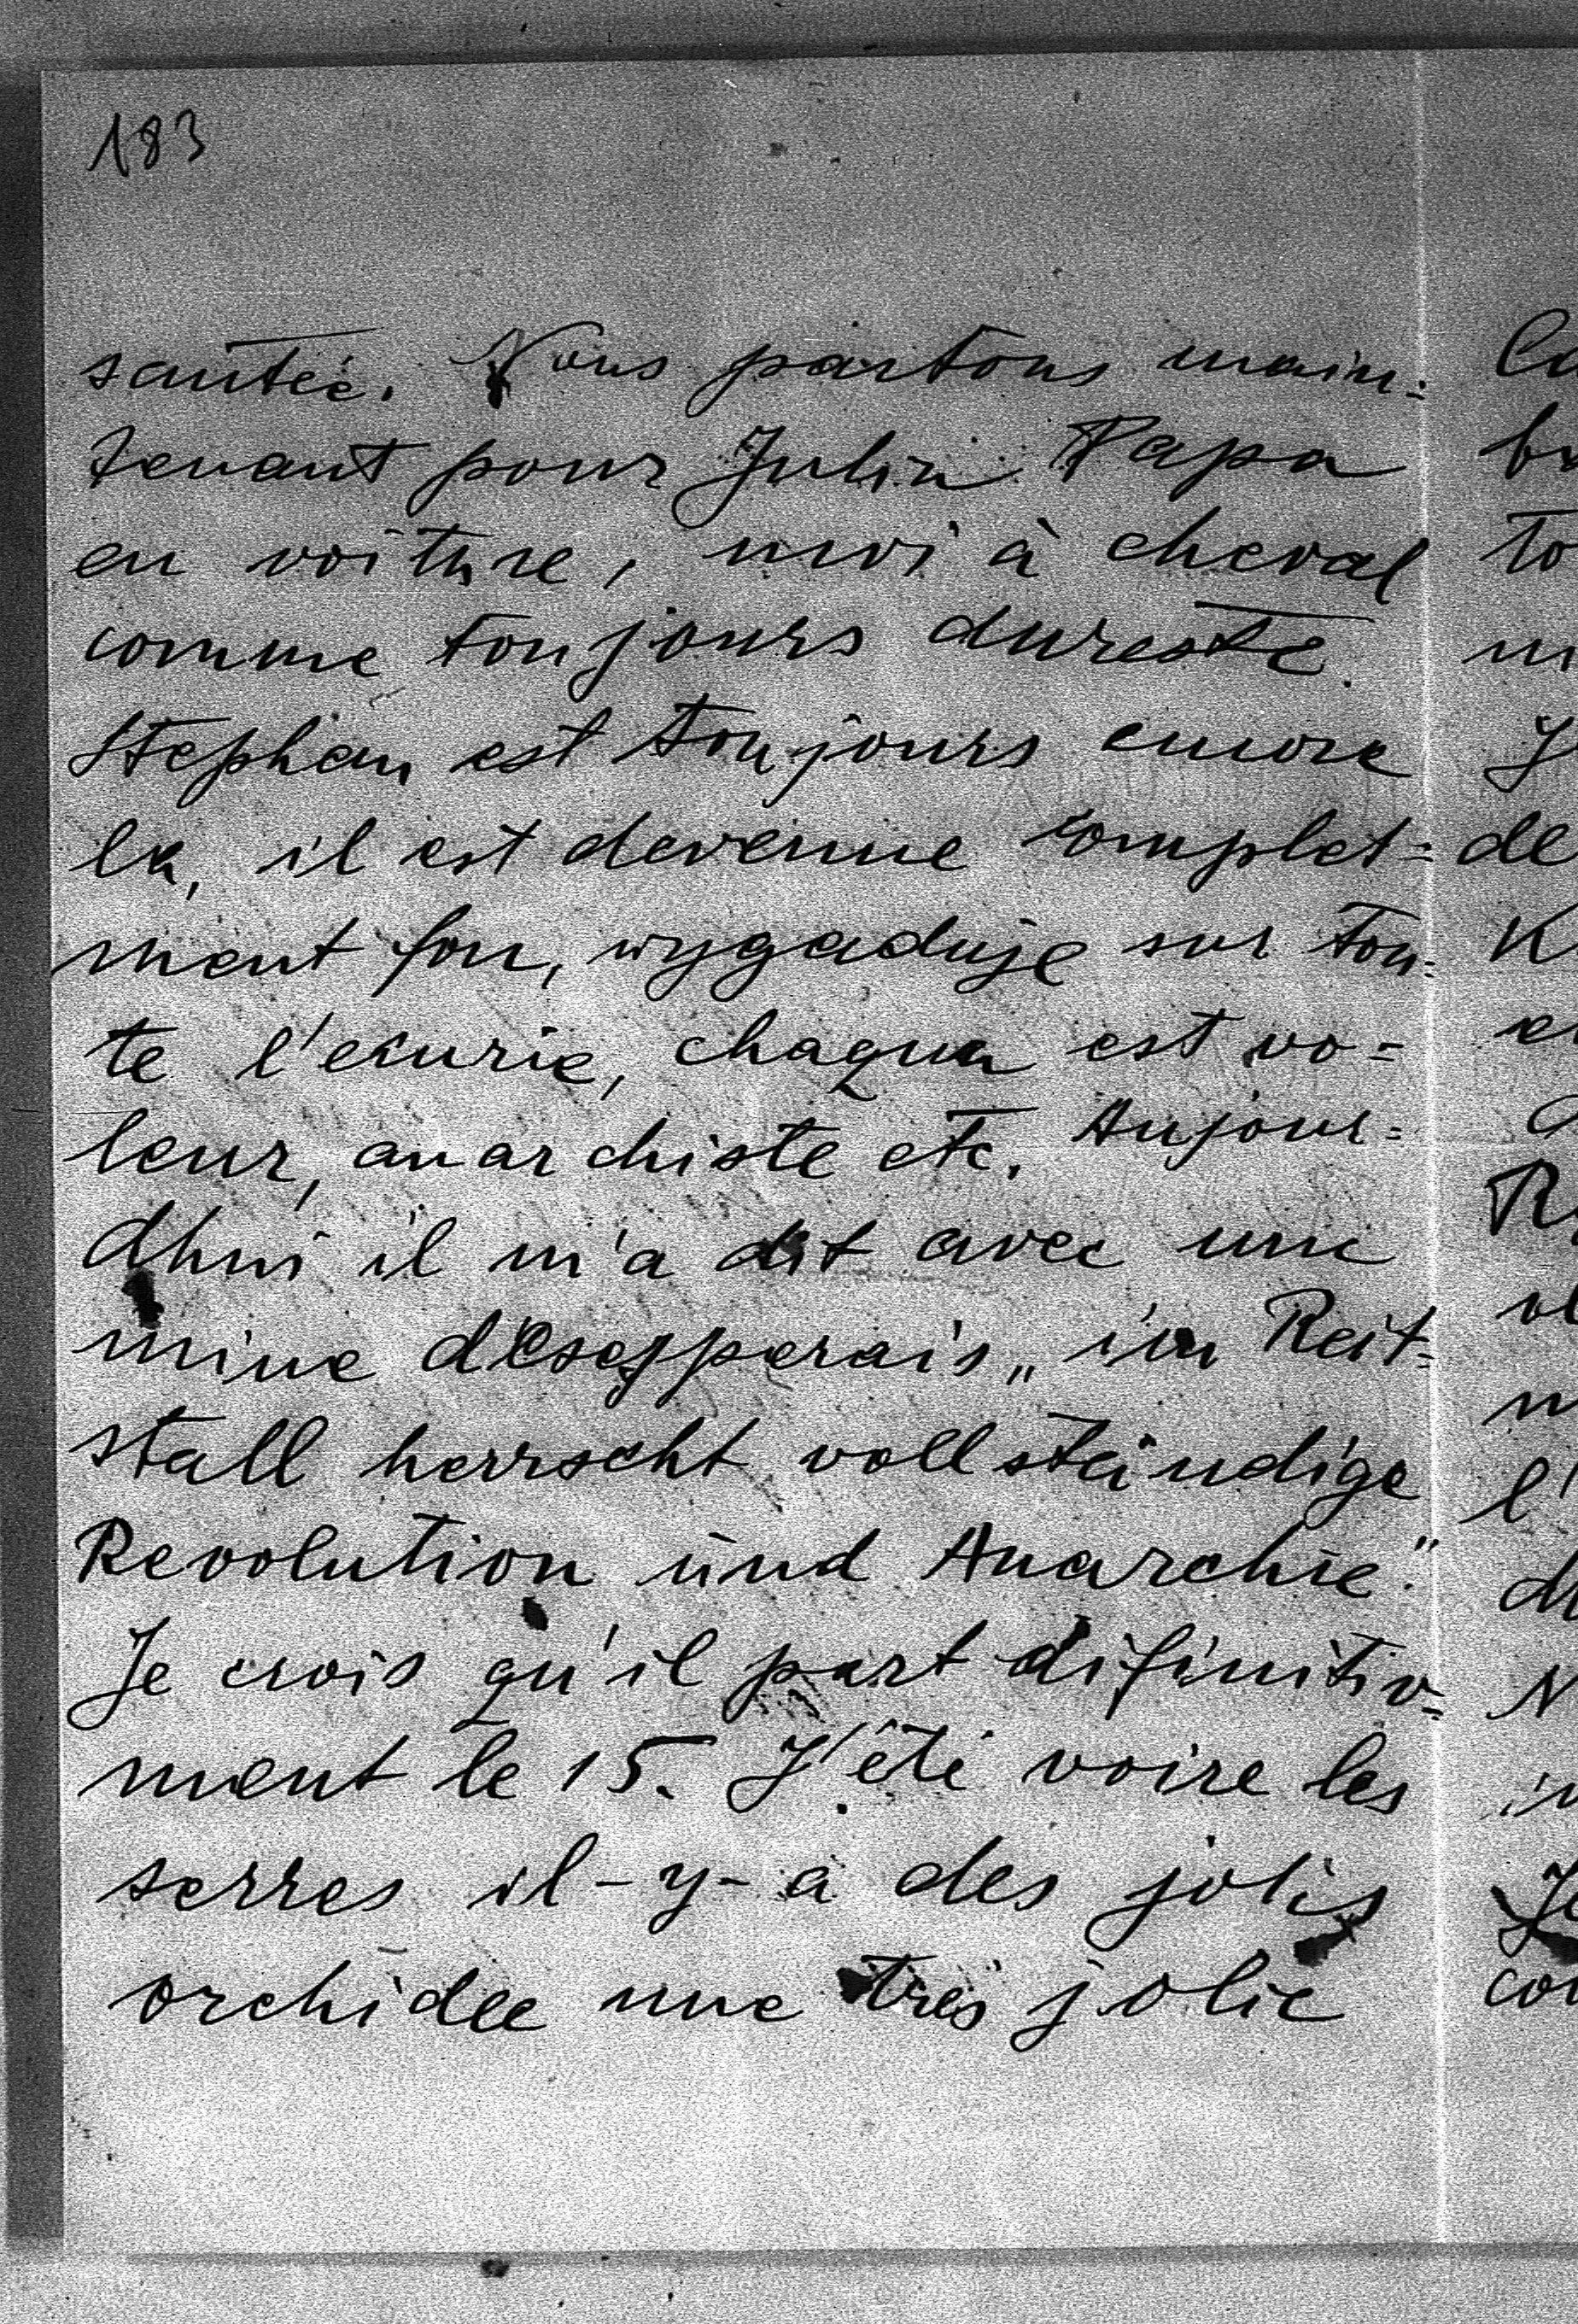 183
santée. Nous partons main=
tenant pour Julin Papa
en voiture, moi à cheval
comme toujours dureste.
Stephan est toujours encore
la, il est devenue complet=
ment fou, wygaduje sur tou=
te l'ecurie, chaqun est vo=
leur, anarchiste etc. Aujour=
dhui il m'a dit avec une
mine desesperais „im Reit=
stall herrscht vollständige
Revolution und Anarchie."
Je crois qu'il part difinitiv=
ment le 15. J'été voire les
serres il-y-a des jolis
orchidee une très jolie